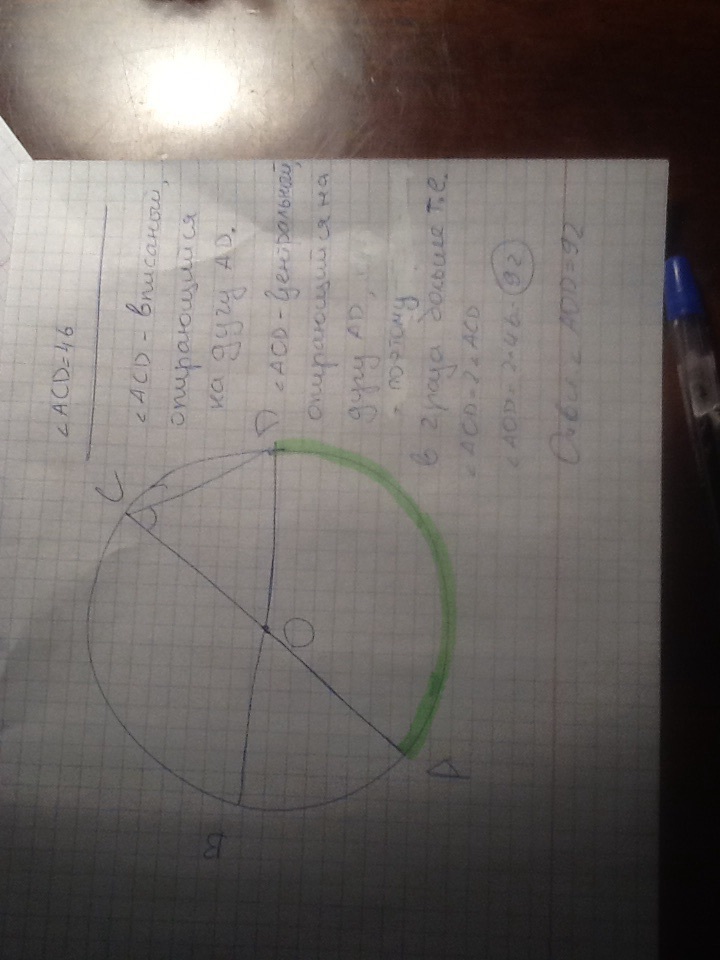 ∠ACD=46
∠ACD - вписаный,
опирающийся
на дугу AD.
∠ACD - центральный,
опирающийся на
дугу AD,
поэтому
в 2 раза больше т.е.
∠AOD=2∠ACD
∠AOD=2·46=92
Ответ: ∠AOD=92
C
D
O
B
A